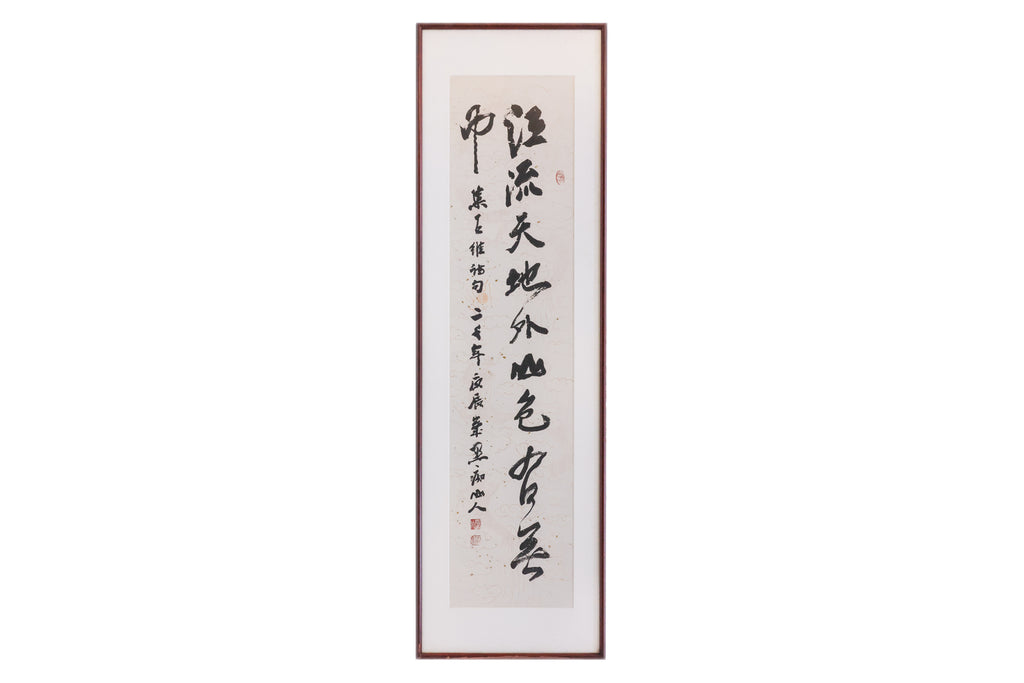 江流天地外山色有無
中 集王維詩句 二千年庚辰 山人